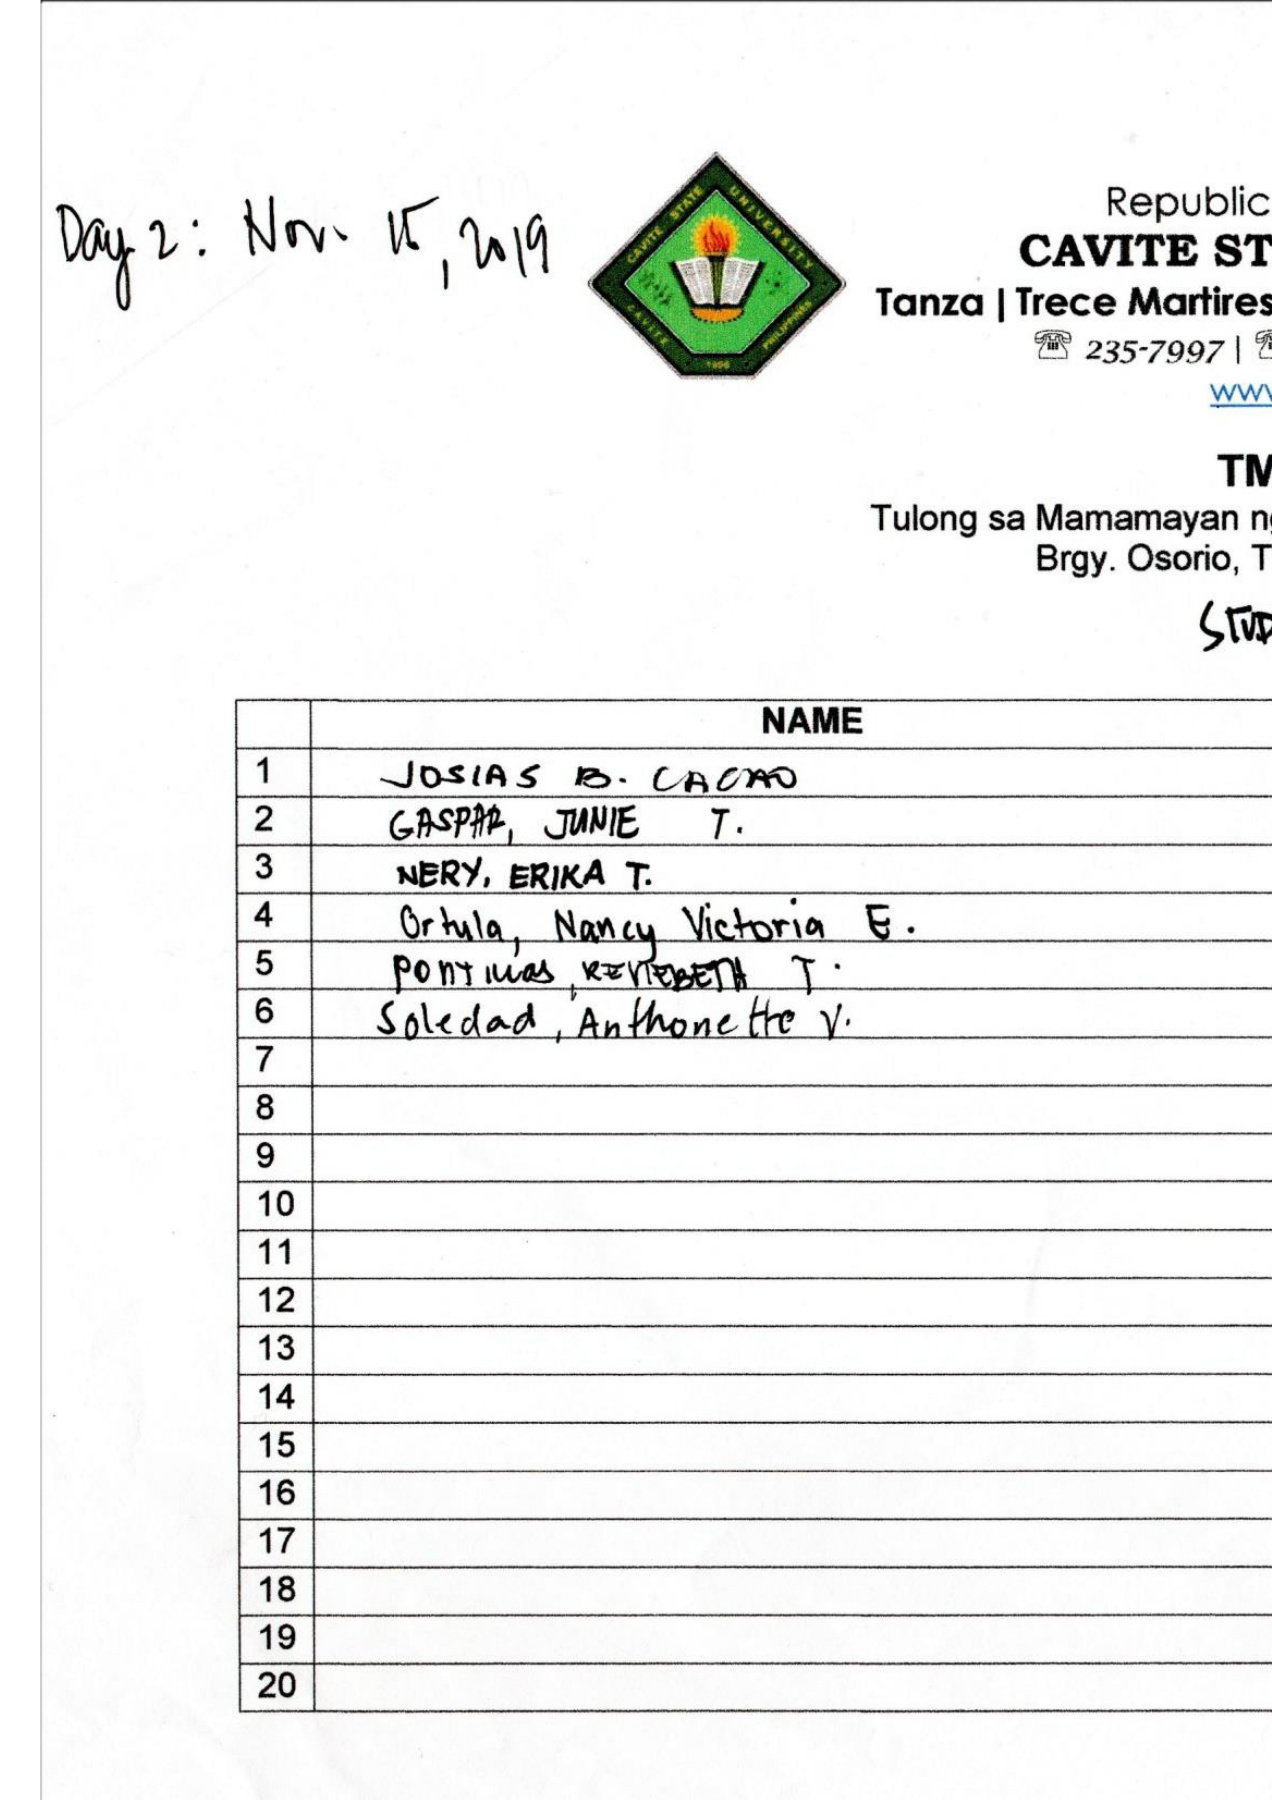 Day 2: Nov. 15, 2019
CAVITE STATE UNIVERSITY
CAVITE
1906
PHILIPPINES
Republic
CAVITE ST
Tanza | Trece Martires
☏ 235-7997 | ☏
www
TM
Tulong sa Mamamayan ng
Brgy. Osorio, T
STUD
NAME
1 JOSIAS B. CACAO
2 GASPAR, JUNIE T.
3 NERY, ERIKA T.
4 Ortula, Nancy Victoria E.
5 T.
6 Soledad, Anthonette V.
7
8
9
10
11
12
13
14
15
16
17
18
19
20